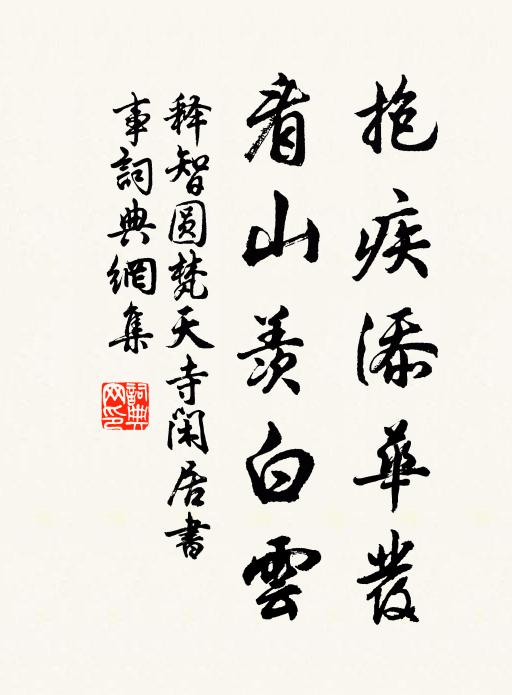 抱疾添華發
看山羨白雲
释智圆梵天寺闲居書
事詞典網集
詞典網印